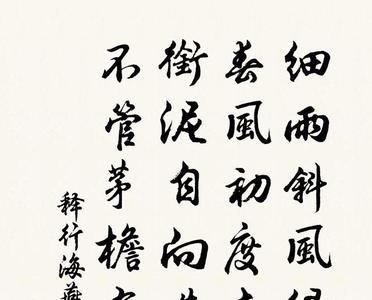 細雨斜風
春風初度
銜泥自向
不管茅檐
釋行海燕